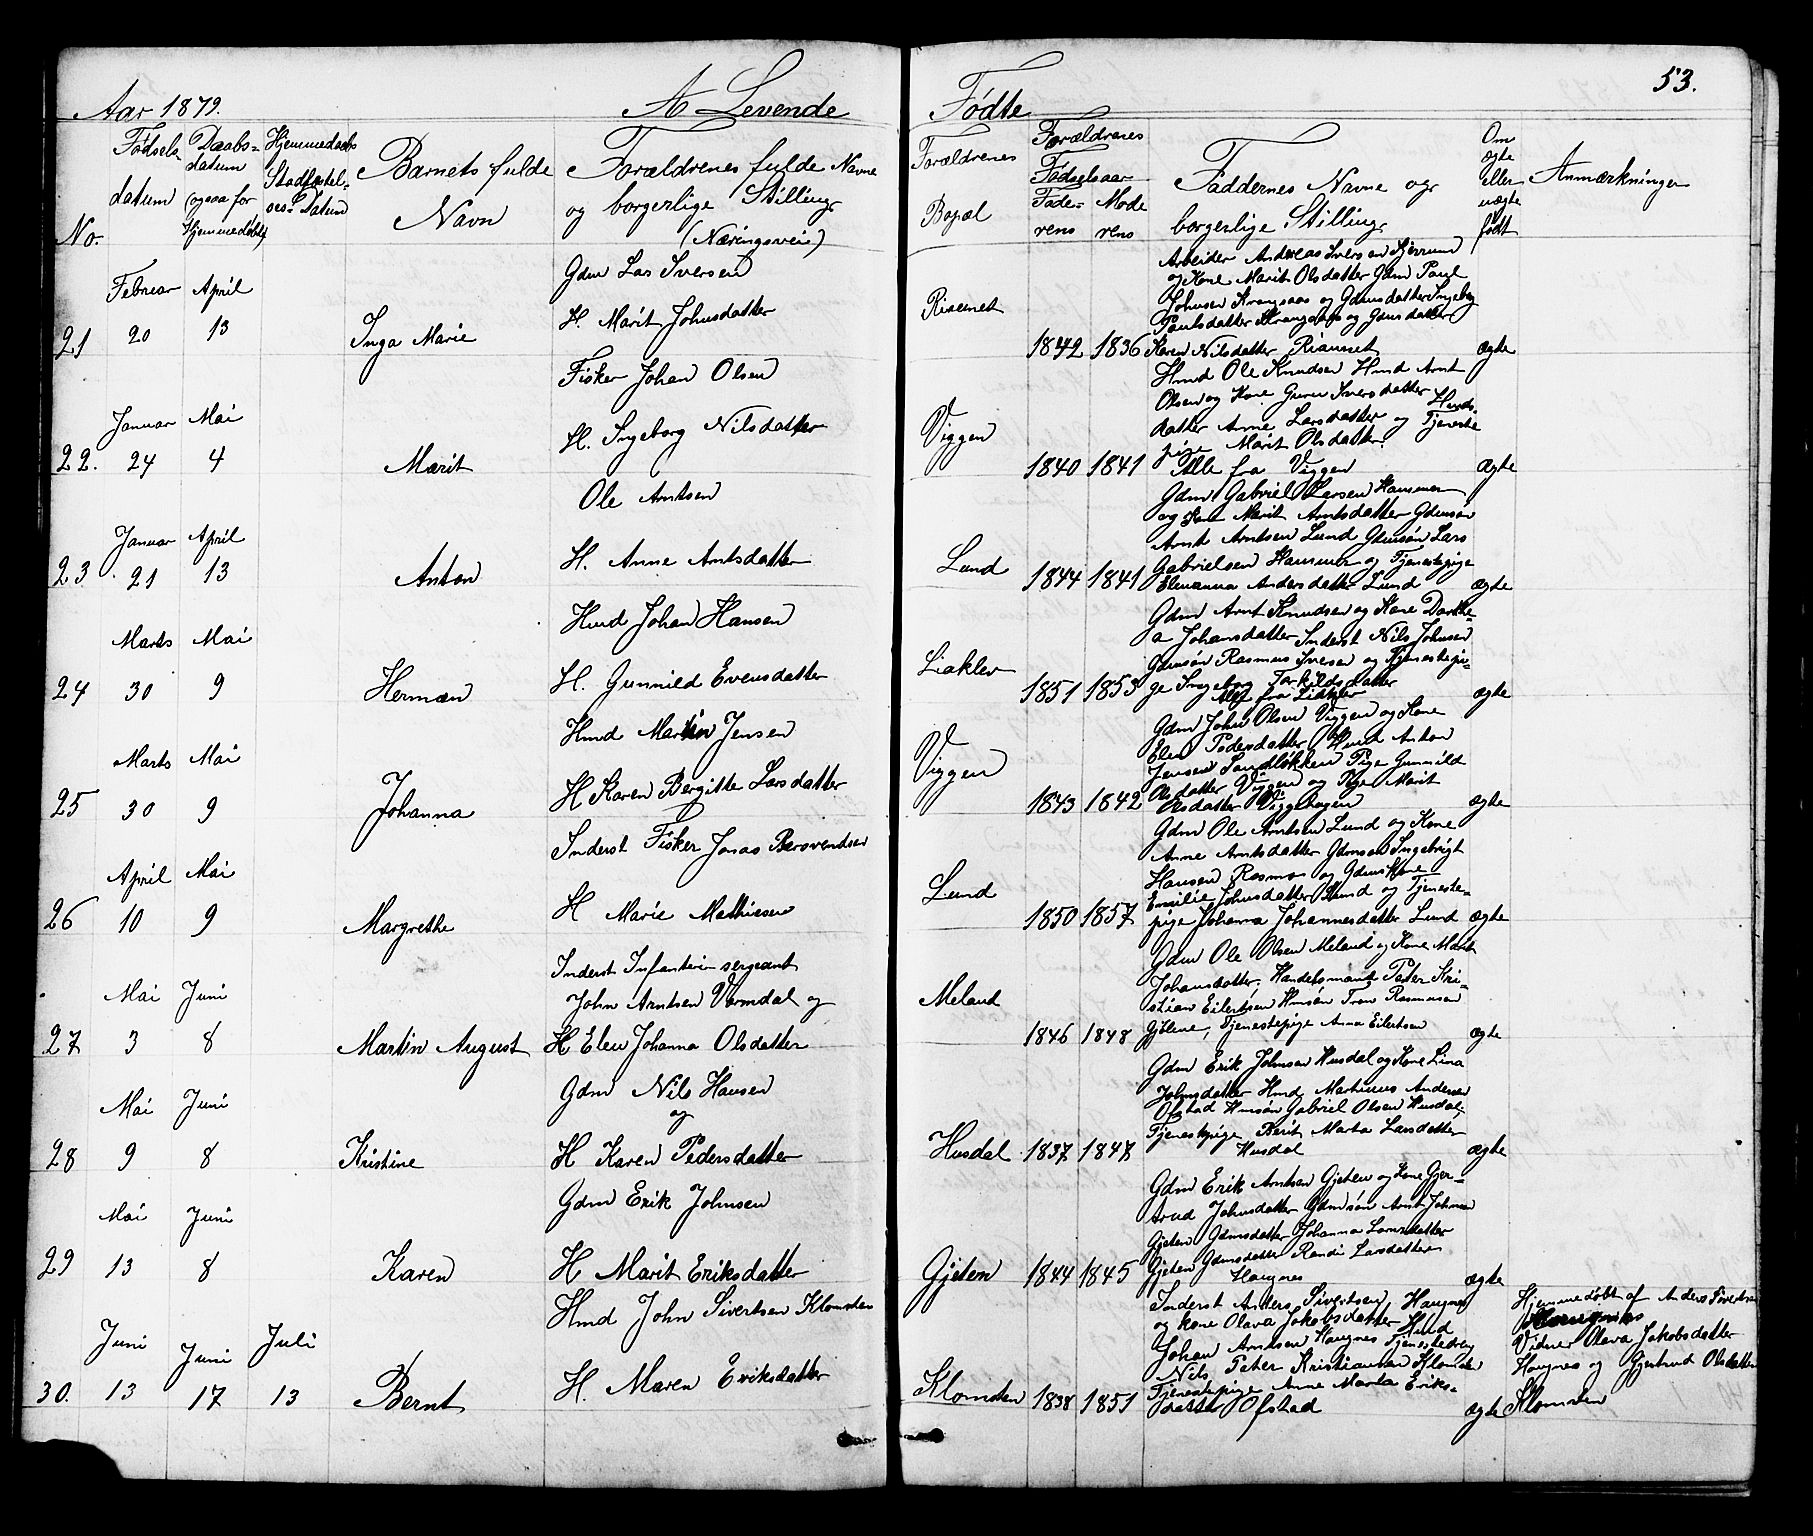 Aar 1879.
A Levende
Fødte
53.
No.
Fødsels-
datum
Daabs-
datum
(ogsaa for
Hjemmedøbte)
Hjemmedaabs
Stadfæstel-
ses-Datum
Barnets fulde
Navn
Forældrenes fulde Navne
og borgerlige Stilling
(Næringsvei)
Forældrenes
Bopæl
Forældrenes
Fødselsaar
Fade- Mode
rens rens
Faddernes Navne og
borgerlige Stilling
Om
ægte
eller
uægte
født
Anmærkninger
Februar April
21 20 13
Inga Marie
Gdm Lars Iversen
H. Marit Johnsdatter
1842 1836
Arbeider Andreas Iversen
og Kone Marit Olsdatter Gdm Paul
Johnsen Krangsaas og Gdmsdatter Ingeborg
Paulsdatter Krangsaas og Gdmsdatter
Karen Nilsdatter
ægte
Januar Mai
22. 24 4
Marit
Fisker Johan Olsen
H. Ingeborg Nilsdatter
Viggen
1840 1841
Hmd Ole Knudsen Hmd Arnt
Olsen og Kone Guru Iversdatter Hmds-
datter Anne Larsdatter og Tjeneste
pige Marit Olsdatter.
Alle fra Viggen
ægte
Januar April
23. 21 13
Anton
Ole Arntsen
H. Anne Arntsdatter
Lund
1844 1841
Gdm Gabriel Larsen Hammer
og Kone Marit Arntsdatter Gdmsøn
Arnt Arntsen Lund Gdmsøn Lars
Gabrielsen Hammer og Tjenestepige
Elenanna Andersdatter Lund
ægte
Marts Mai
24 30 9
Herman
Hmd Johan Hansen
H. Gunnild Evensdatter
Liaklev
1851 1855
Gdm Arnt Knudsen og Kone Dorthe-
a Johansdatter Inderst Nils Johnsen
Gdmsøn Rasmus Iversen og Tjenestepi-
ge Ingeborg Torkildsdatter
Alle fra Liaklev
ægte
Marts Mai
25 30 9
Johanna
Hmd Martin Jensen
H Karen Bergitte Larsdatter
Viggen
1843 1842
Gdm John Olsen Viggen og Kone
Elen Pedersdatter Hmd Anton
Jensen Sandløkken Pige Gunnild
Olsdatter Viggen og Pige Marit
Olsdatter Viggebugen
ægte
April Mai
26 10 9
Margrethe
Inderst Fisker Jonas Bersvendsen
H Marie Mathiesen
Lund
1850 1857
Gdm Ole Arntsen Lund og Kone
Anne Arntsdatter Gdmsøn Ingebrigt
Hansen og Gdms Kone
Emilie Johnsdatter Lund og Tjeneste-
pige Johanna Johannesdatter Lund
ægte
Mai Juni
27 3 8
Martin August
Inderst Infanteri sergeant
John Arntsen Vormdal og
H Elen Johanna Olsdatter
Meland
1846 1848
Gdm Ole Olsen Meland og Kone Marit
Johansdatter. Handelsmand Peter Kri-
stian Eilertsen Hmsøn Tron Rasmusen
Gjølme, Tjenestepige Anna Eilertsen
ægte
Mai Juni
28 9 8
Kristine
Gdm Nils Hansen
og
H Karen Pedersdatter
Husdal
1837 1847
Gdm Erik Johnsen Husdal og Kone Lina
Johnsdatter Hmd Martinus Andersen
Ofstad Hmsøn Gabriel Olsen Husdal.
Tjenestepige Berit Marta Larsdatter
Husdal
ægte
Mai Juni
29 13 8
Karen
Gdm Erik Johnsen
H Marit Eriksdatter
Gjeten
1844 1845
Gdm Erik Arntsen Gjeten og Kone Gjer-
trud Johnsdatter Gdmsøn Arnt Johnsen
Gjeten Gdmsdatter Johanna Larsdatter
Gjeten Gdmsdatter Randi Larsdatter
Haugnes
ægte
Juni Juni Juli
30. 13 17 13
Bernt
Hmd John Sivertsen Klomsten
H. Maren Eriksdatter
Klomsten
1838 1851
Inderst Anders Sivertsen Haugnes
og Kone Olava Jakobsdatter Hmd
Johan Arntsen Haugnes Tjenestedreng
Nils Peter Kristiansen Klomsten
Tjenestepige Anne Marta Eriks-
datter Ofstad
ægte
Hjemmedøbt af Anders Sivertsen
Haugnes
Vidner Olava Jakobsdatter
Haugnes og Gjertrud Olsdatter
Klomsten